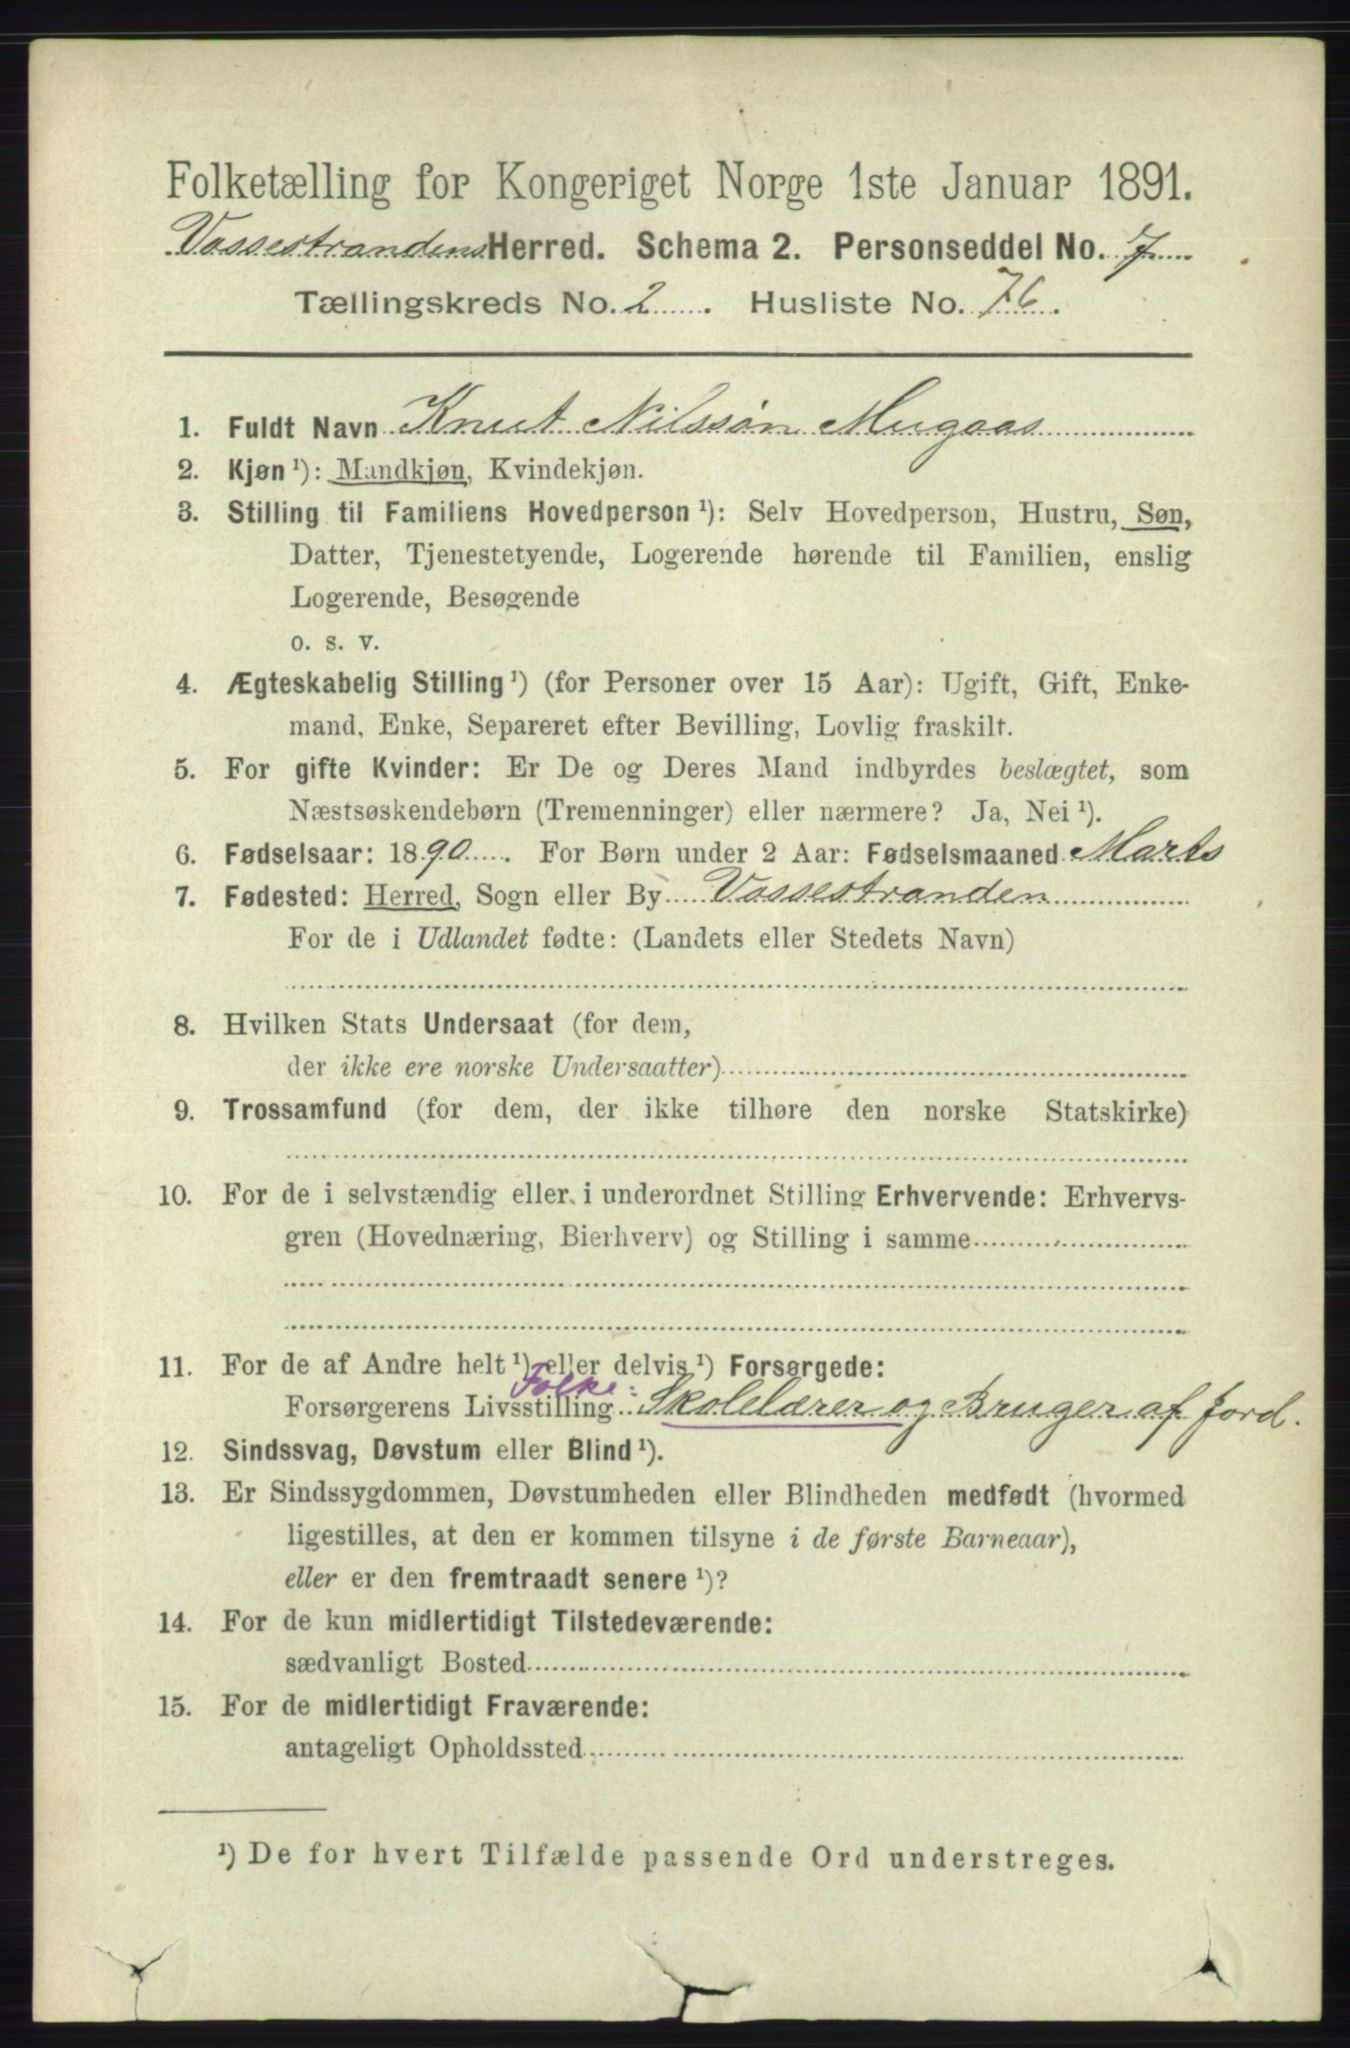 Folketælling for Kongeriget Norge 1ste Januar 1891.
Vossestrandens Herred. Schema 2. Personseddel No. 7
Tællingskreds No. 2. Husliste No. 76.
1. Fuldt Navn Knut Nilssøn Mugaas
2. Kjøn¹): Mandkjøn, Kvindekjøn.
3. Stilling til Familiens Hovedperson¹): Selv Hovedperson, Hustru, Søn,
Datter, Tjenestetyende, Logerende hørende til Familien, enslig
Logerende, Besøgende
o. s. v.
4. Ægteskabelig Stilling¹) (for Personer over 15 Aar): Ugift, Gift, Enke-
mand, Enke, Separeret efter Bevilling, Lovlig fraskilt.
5. For gifte Kvinder: Er De og Deres Mand indbyrdes beslægtet, som
Næstsøskendebørn (Tremenninger) eller nærmere? Ja, Nei¹).
6. Fødselsaar: 1890. For Børn under 2 Aar: Fødselsmaaned Marts
7. Fødested: Herred, Sogn eller By Vossestranden
For de i Udlandet fødte: (Landets eller Stedets Navn)
8. Hvilken Stats Undersaat (for dem,
der ikke ere norske Undersaatter)
9. Trossamfund (for dem, der ikke tilhøre den norske Statskirke)
10. For de i selvstændig eller i underordnet Stilling Erhvervende: Erhvervs-
gren (Hovednæring, Bierhverv) og Stilling i samme
11. For de af Andre helt¹) eller delvis¹) Forsørgede:
Folke:
Forsørgerens Livsstilling Skolelærer og Bruger af Jord.
12. Sindssvag, Døvstum eller Blind¹).
13. Er Sindssygdommen, Døvstumheden eller Blindheden medfødt (hvormed
ligestilles, at den er kommen tilsyne i de første Barneaar),
eller er den fremtraadt senere¹)?
14. For de kun midlertidigt Tilstedeværende:
sædvanligt Bosted
15. For de midlertidigt Fraværende:
antageligt Opholdssted
¹) De for hvert Tilfælde passende Ord understreges.